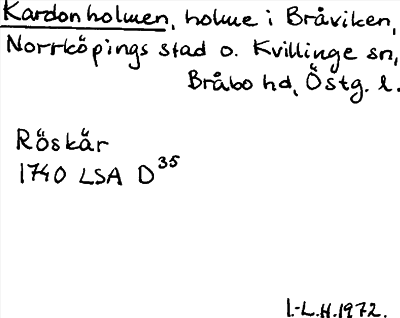 Kardonholmen, holme i Bråviken,
Norrköpings stad o. Kvillinge sn,
Bråbo hd, Östg. l.
Röskär
1740 LSA D35
I.-L.H.1972.